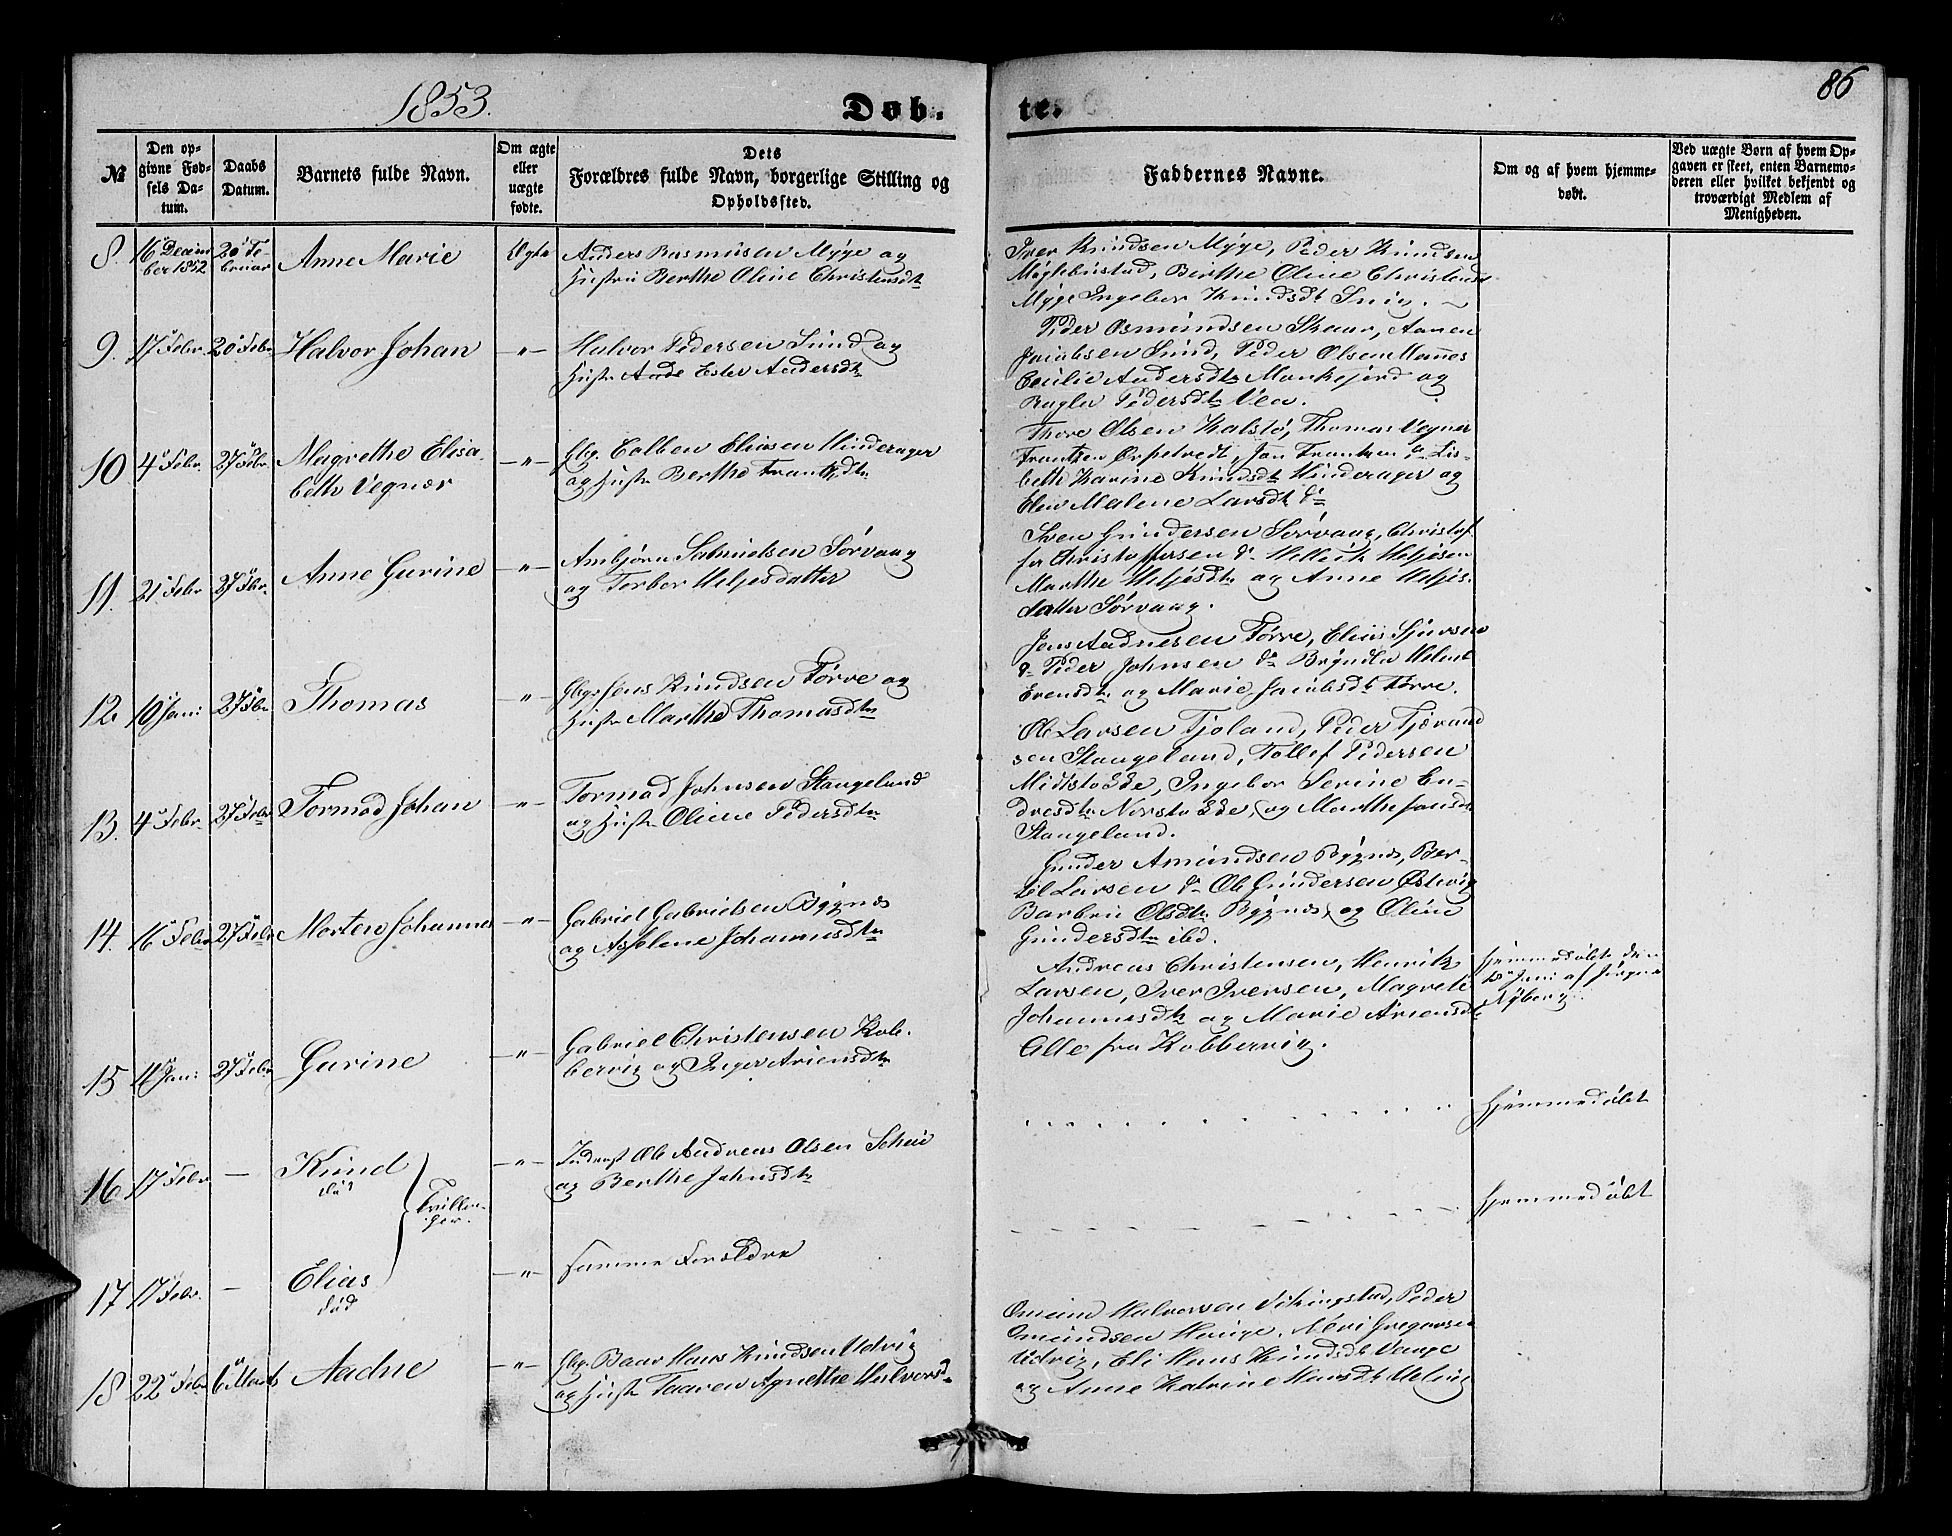 1853.
Døb.
te.
86
№
Den op-
givne Fød-
sels Da-
tum.
Daabs
Datum.
Barnets fulde Navn.
Om ægte
eller
uægte
fødte.
Dets
Forældres fulde Navn, borgerlige Stilling og
Opholdssted.
Faddernes Navne.
Om og af hvem hjemme-
døbt.
Ved uægte Børn af hvem Op-
gaven er skeet, enten Barnemo-
deren eller hvilket bekjendt og
troværdigt Medlem af
Menigheden.
8. 16 Decem
ber 1852
20 Fe-
bruar
Anne Marie
Ægte
Anders Rasmussen Myge og
Hustru Berthe Oline Christensdtr
Iver Knudsen Myge, Peder Knudsen
Berthe Oline Christensd
Myge Ingebor Knudsdt
9. 17 Febr 20 Febr Halvor Johan -"-
Halvor Pedersen Sund og
Hustr Ester Andersdtr
Peder Osmundsen Skaar,
Jacobsen Sund, Peder Olsen Mannes
Cecilie Andersdtr og
Pedersdtr Vea.
10 4 Febr. 27 Febr.
Magrethe Elisa-
beth Vegner
-"-
Gbr. Colben Eliasen Hinderager
og Hustr Berthe Frantzdtr
Thore Olsen Kalstø, Thomas Vegner
Frantzen Jan Frantzen do Lis-
beth Karine Knudsdtr Hinderager og
Elen Malene Larsdt do
11. 21 Febr 27 Febr. Anne Gurine -"-
Ambjørn Samuelsen Sørvaag
og Torbor Heljesdatter
Sven Gundersen Sørvaag, Christof-
fer Christoffersen do Helleik Heljesen
Marthe Heljesdtr og Anne Heljes-
datter Sørvaag.
12. 10 Jan: 27 Febr Thomas -"-
Gbgr Jens Knudsen Førre og
Hustr Marthe Thomasdtr
Jens Aadnesen Førre, Elias Sjursen
do Peder Johnsen do Helene
Evensdtr og Marie Jacobsdt Førre.
13. 4 Febr. 27 Febr Tormod Johan -"-
Tormod Johnsen Stangeland
og Hustr Oline Pedersdtr
Ole Larsen Tjoland, Peder Tjerand
sen Stangeland, Tollef Pedersen
Midtstokke, Ingebor Serine En-
dresdtr Norstokke, og Marthe Jansdt
Stangeland.
14. 16 Febr 27 Febr Morten Johannes -"-
Gabriel Gabrielsen Bygnes
og Asselene Johannesdtr
Gunder Amundsen Bygnes, Ber-
til Larsen do Ole Gundersen Østevig
Barbru Olsdtr Bygnes, og Oline
Gundersdtr ibd.
15 11 Jan: 27 Febr Gurine -"-
Gabriel Christensen Kob-
bervig og Inger Ariensdtr
Andreas Christensen, Henrik
Larsen, Iver Iversen, Magrete
Johannesdtr og Marie Ariensdt
Alle fra Kobbervig.
Hjemmedøbt den
Jan: af
Nyberg.
16 17 Febr — Knud
død
Tvillin-
ger.
-"-
Inderst Ole Andreas Olsen Scheie
og Berthe Johnsdtr
Hjemmedøbt
17 17 Febr. — Elias
død
-"-
samme Forældre
Hjemmedøbt
18 22 Febr 6 Marts Aadne -"-
Gbr. Baar Hans Knudsen Udvig
og Hustr Taaren Agnethe Halvorsd.
Omund Halvorsen Vikingstad, Peder
Omundsen Hauge,
Udvig, Eli Hans Knudsdt Vaage
og Anne Katrine Hansdt